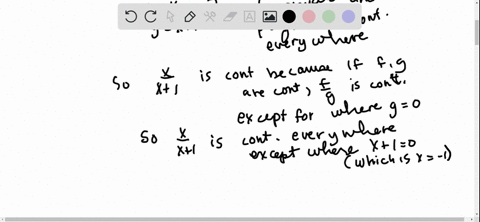 cont.
every where
So x/x+1 is cont because if f, g
are cont, f/g is cont.
except for where g = 0
So x/x+1 is cont. everywhere
except where x+1=0
(which is x=-1)